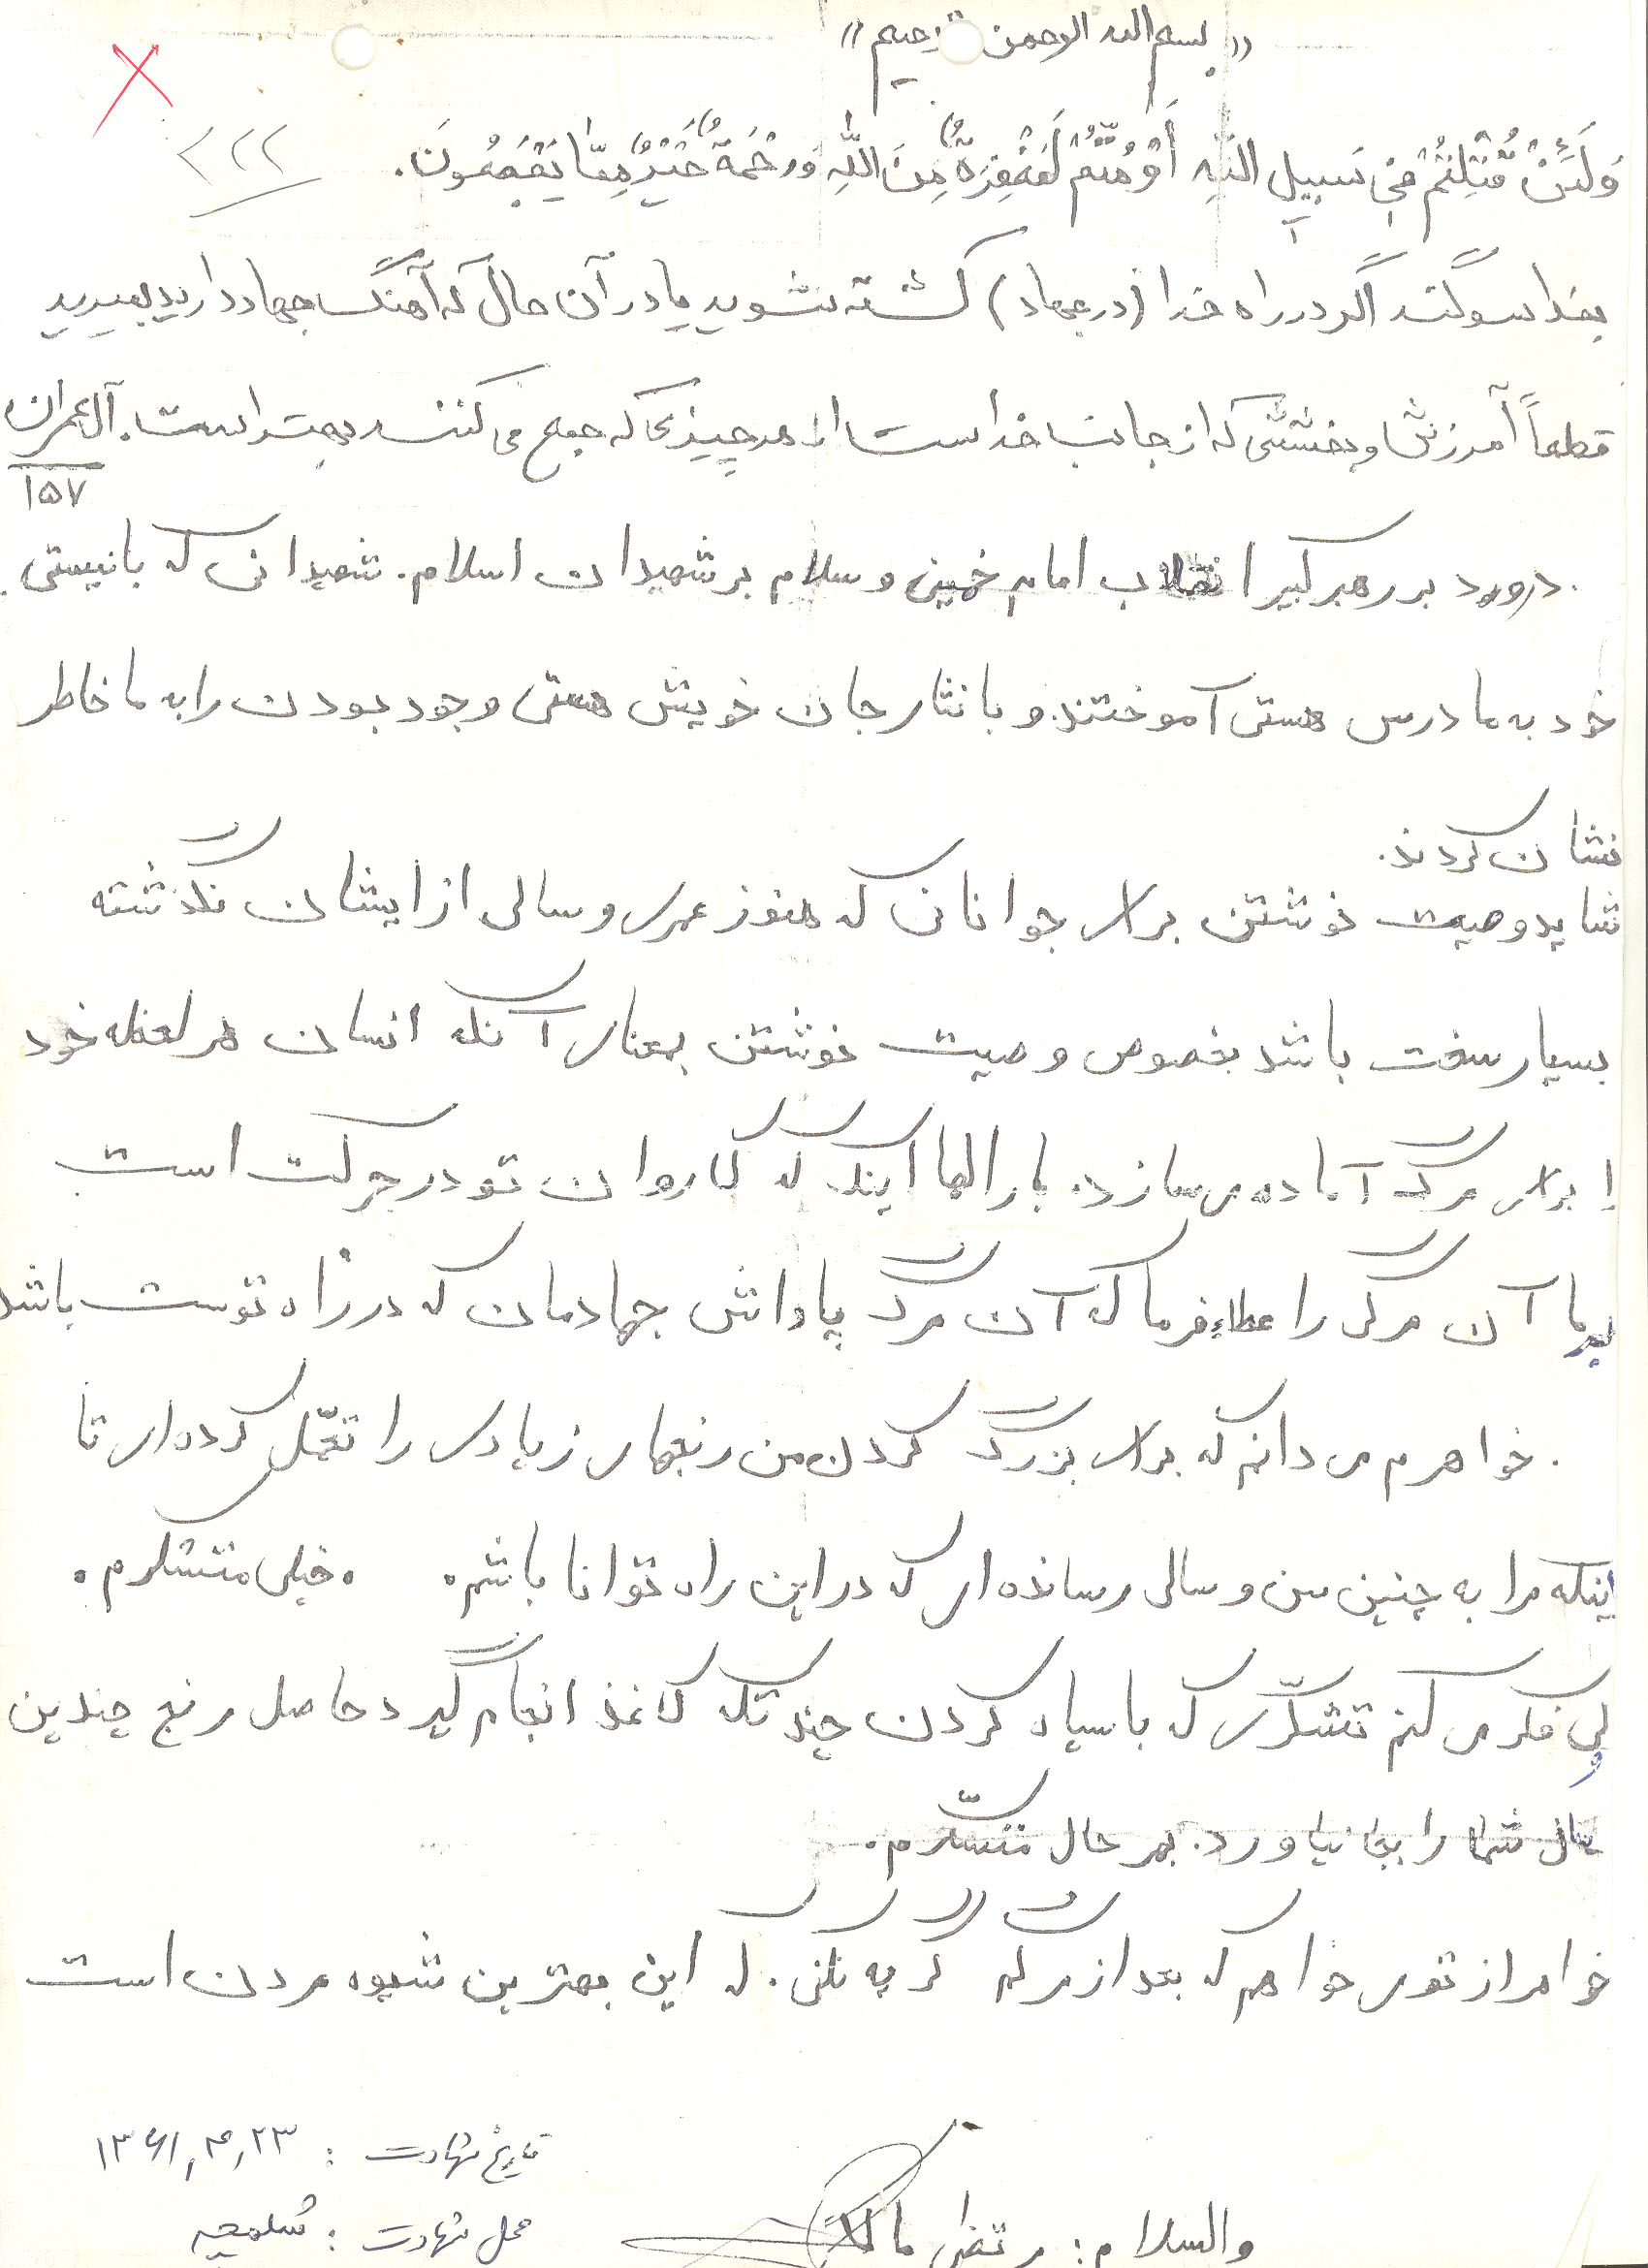 «بسم الله الرحمن رحیم»
وَلَئِنْ قُتِلْتُمْ فِی سَبیلِ اللهِ أَوْ مُتُّمْ لَمَغْفِرَةٌ مِنَ اللهِ وَرَحْمَةٌ خَیْرٌ مِمّا یَجْمَعُونَ.
بخدا سوگند اگر در راه خدا (در جهاد) کشته شوید یا در آن حال که آهنگ جهاد دارید بمیرید
قطعاً آمرزش و بخششی که از جانب خداست از هر چیزی که جمع می کنند بهتر است. آل عمران
۱۵۷
. درود بر رهبر کبیر انقلاب امام خمینی و سلام بر شهیدان اسلام. شهیدانی که با نیستی
خود به ما درس هستی آموختند و با نثار جان خویش هستی وجود بودن را به ما خاطر
نشان کردند.
شاید وصیت نوشتن برای جوانانی که هنوز عمری و سالی از ایشان نگذشته
بسیار سخت باشد بخصوص وصیت نوشتن بمعنای آنکه انسان هر لحظه خود
را برای مرگ آماده می سازد. بار الها اینک که کاروان تو در حرکت است
بر ما آن مرگی را عطاء فرما که آن مرگ پاداش جهادمان که در راه توست باشد
. خواهرم می دانم که برای بزرگ کردن من رنجهای زیادی را تحمّل کرده ای تا
اینکه مرا به چنین سن و سالی رسانده ای که در این راه توانا باشم. . خیلی متشکرم.
ولی فکر می کنم تشکّری که با سیاه کردن چند تکه کاغذ انجام گیرد حاصل رنج چندین
سال شما را بجا نیاورد. بهر حال متشکّرم.
خواهر از تو می خواهم که بعد از مرگم گریه نکنی. که این بهترین شیوه مردن است
والسلام: مرتضی
تاریخ شهادت: ۱۳۶۱,۴,۲۳
محل شهادت: شلمچه